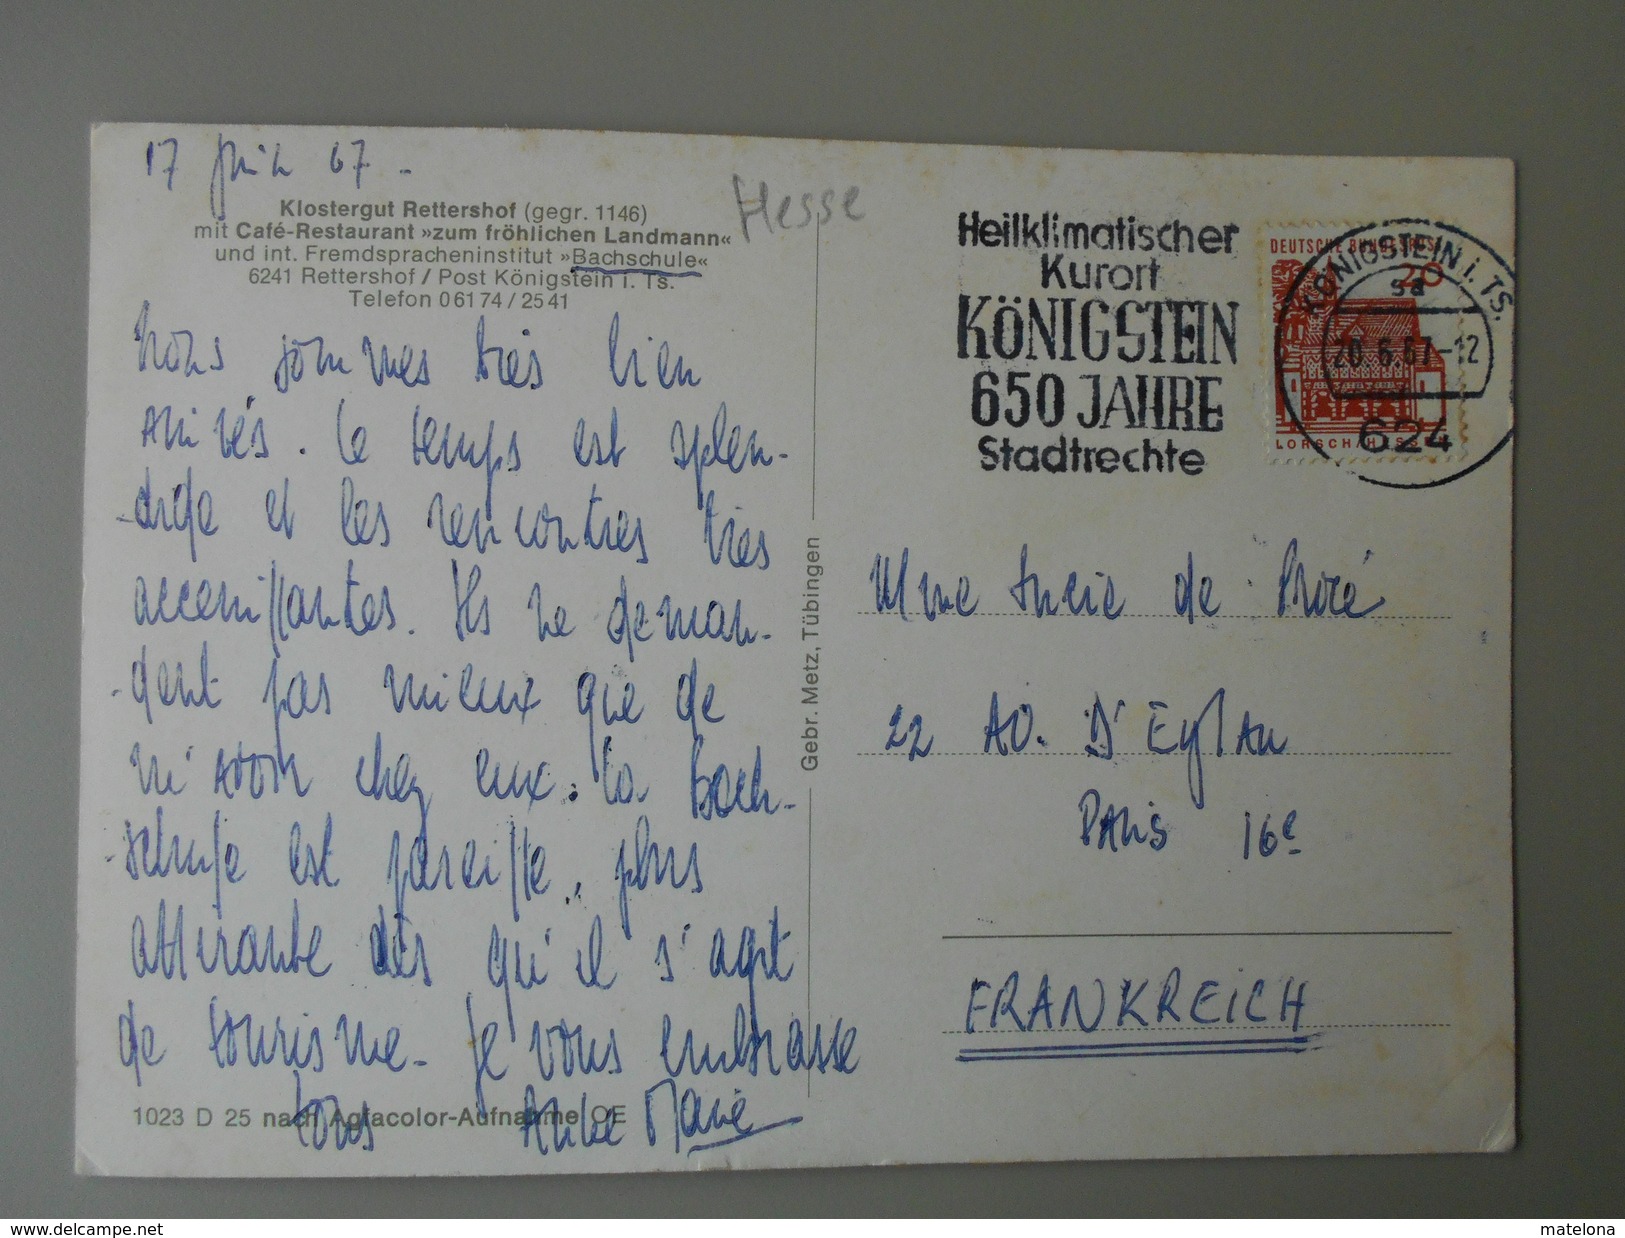 17 Juin 67 -
Klostergut Rettershof (gegr. 1146)
mit Café-Restaurant »zum fröhlichen Landmann«
und int. Fremdspracheninstitut »Bachschule«
6241 Rettershof / Post Königstein i. Ts.
Telefon 0 61 74 / 25 41
Nous sommes très bien
arrivés. Le temps est splen-
-dide et les rencontres très
accueillantes. Ils ne deman-
-dent pas mieux que de
m'avoir chez eux. La Bach-
-schule est pareille, plus
attirante dès qu'il s'agit
de tourisme - Je vous embrasse
tous Anne Marie
1023 D 25 nach Agfacolor-Aufnahme OE
Hesse
Gebr. Metz, Tübingen
Heilklimatischer
Kurort
KÖNIGSTEIN
650 JAHRE
Stadtrechte
DEUTSCHE BUNDESPOST
20
LORSCH/HESSEN
KÖNIGSTEIN i. TS.
sa
20.6.67-12
624
Mme de
22 Av. D'Eylau
PARIS 16e
FRANKREICH
delcampe.net
matelona